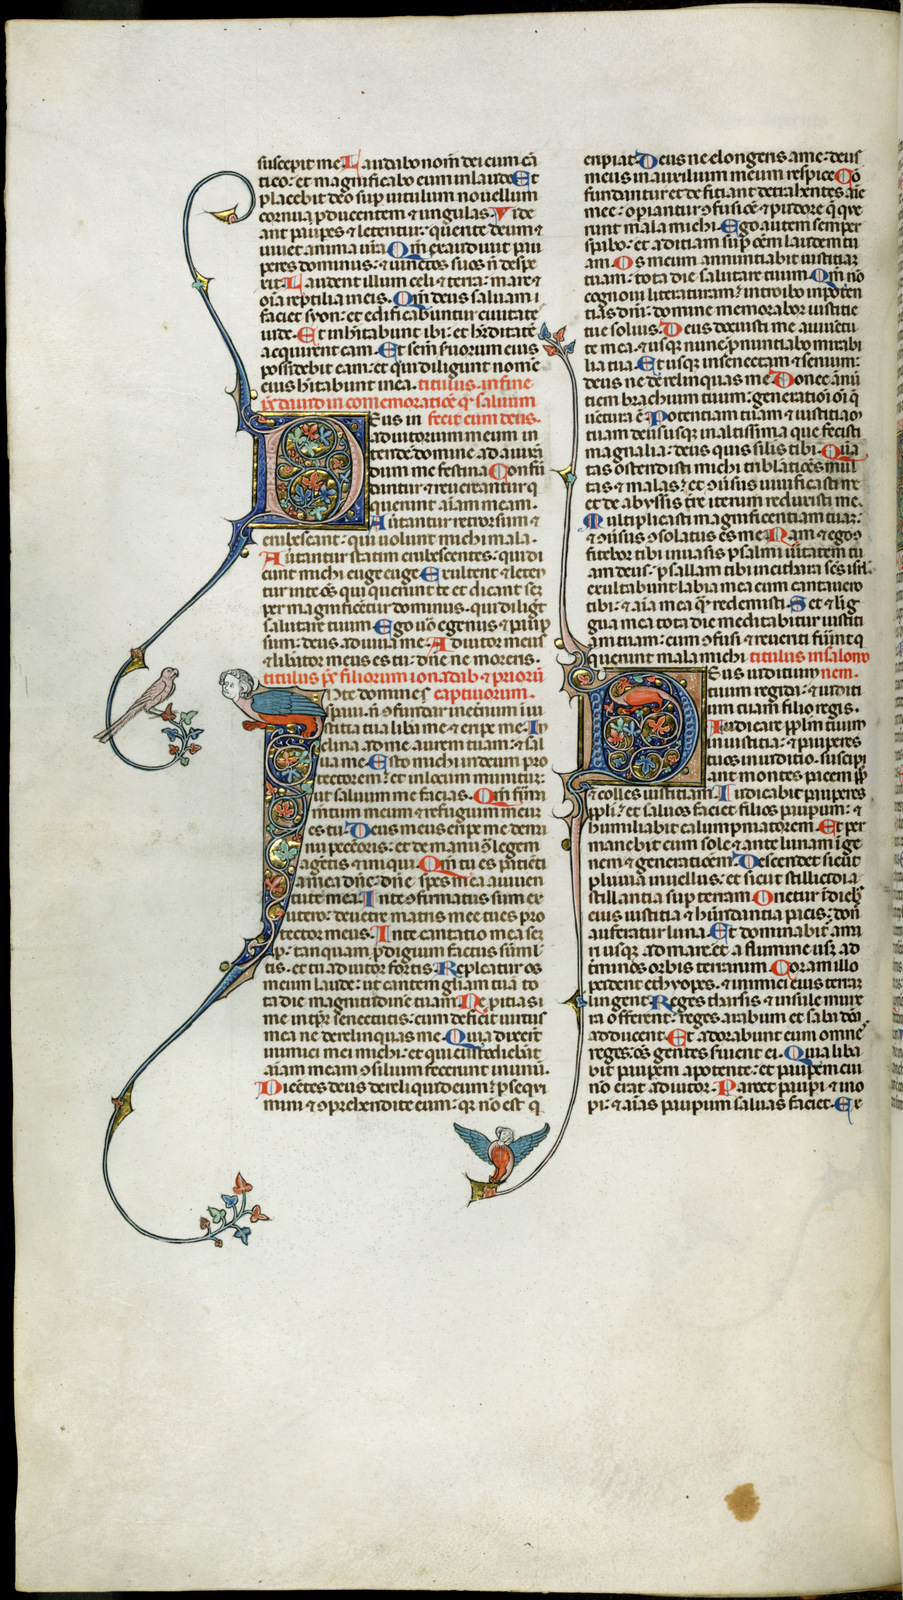 suscepit me. Laudabo nom̄ dei cum cā
tico: et magnificabo eum in laude. Et
placebit deo sup̄ uitulum nouellum
cornua p̄ducentem & ungulas. Vide
ant paup̄es & letentur: querite deum &
uiuet anima ur̄a. Qm̄ exaudiuit pau
peres dominus: & uinctos suos n̄ despe
xit. Laudent illum celi & terra: mare &
oīa reptilia in eis. Qm̄ deus saluam
faciet syon: et edificabuntur ciuitate
iude. Et inhitabunt ibi: et h̄editate
acquirent eam. Et sem̄ seruorum eius
possidebit eam: et qui diligunt nomē
eius h̄itabunt in ea. titulus. in fine
ip̄e dauid in cōmemoratiōe q̄ saluum
Deus in fecit eum deus.
adiutorium meum in
tende: domine ad adiuuā
dum me festina. Confū
dantur & reuereantur q
querunt aīam meam.
Auertantur retrorsum &
erubescant: qui uolunt michi mala.
Auertantur statim erubescentes: qui di
cunt michi euge euge. Exultent & leten
tur in te ōs qui querunt te et dicant sē
per magnificetur dominus. qui diligt̄
salutare tuum. Ego uo egenus & paup̄
sum: deus adiuua me. Adiutor meus
& lib̄ator meus es tu: dn̄e ne moreris.
titulus ps̄ filiorum ionadab & prioru
In te domine s captiuorum.
speraui n̄ ꝯfundar in et̄num iu
sticia tua lib̄a me & eripe me. In
clina ad me aurem tuam: & sal
ua me. Esto michi in deum pro
tectorem: et in locum munitum:
ut saluum me facias. Qm̄ firm
mentum meum & refugium meum
es tu. Deus meus eripe me de ma
nu peccoris: et de manu ꝯ legem
agētis & iniqui. Qm̄ tu es patiētia
mea dn̄e: dn̄e spes mea a iuuen
tute mea. In te ꝯfirmatus sum ex
utero: de uētre matris mee tu es pro
tector meus. In te cantatio mea sēp
ap̄. tanquam p̄digium factus sum ml
tis. et tu adiutor fortis. Repleatur os
meum laude: ut cantem gliam tuā to
ta die magnitudinē tuam. Ne p̄icias
me in tp̄r senectutis: cum defic̄it uirtus
mea ne derelinquas me. Quia dixer̄t
inimici mei michi: et qui custodiebāt
aīam meam ꝯsilium fecerunt in unū.
Dicētes deus dereliquit eum: p̄sequi
mini & ꝯprehendite eum: qr̄ nō est q
eripiat. Deus ne elongeris a me: deus
meus in auxilium meum respice. Cō
fundantur et deficiant detrahentes aīe
mee: op̄iantur ꝯfusiōe & pudore q̄ q̄re
runt mala michi. Ego autem semper
sp̄abo: et adiciam sup̄ ōēm laudem tu
am. Os meum annuntiabit iusticiam
tuam: tota die salutare tuum. Qm̄ nō
cognoui literaturam: introibo in poten
tias dn̄i: domine memorabor iusticie
tue solius. Deus docuisti me a iuuētu
te mea: & usq̄ nunc p̄nuntiabo mirabi
lia tua. Et usq̄ in senectam & senium:
deus ne derelinquas me. Donec annū
tiem brachium tuum: generatiōi oī q̄
uētura ē. Potentiam tuam & iustitiam
tuam deus usq̄ in altissima que fecisti
magnalia: deus quis silis tibi. Quā
tas ostendisti michi tribulatiōes mul
tas & malas: et ꝯuersus uiuificasti me
et de abyssis tr̄e iterum reduxisti me.
Multiplicasti magnificentiam tuam:
& ꝯuersus ꝯsolatus es me. Nam & ego ꝯ
fitebor tibi in uasis psalmi ueritatem tu
am deus: psallam tibi in cithara sc̄s isrl̄.
exultabunt labia mea cum cantauero
tibi: & aīa mea q̄ redemisti. Set & lig
gua mea tota die meditabitur iusti
am tuam: cum ꝯfusi & reueriti fuerint q
querunt mala michi. titulus in salomo
Deus iudicium nem.
tuum regi da: & iusti
am tuam filio regis.
Iudicare pplm̄ tuum
in iusticia: & pauperes
tuos in iudicio. Suscipi
ant montes pacem pp̄
& colles iusticiam. Iudicabit pauperes
ppli: et saluos faciet filios paup̄um: &
humiliabit calumpniatorem. Et per
manebit cum sole & ante lunam i ge
nerm & generatiōem. Descendet sicut
pluuia in uellus: et sicut stillicidia
stillantia sup̄ terram. Orietur i dieb̄
eius iusticia & habundantia pacis: donec
auferatur luna. Et dominabit̄ a ma
ri usq̄ ad mare: et a flumine usq̄ ad
t̄minos orbis terrarum. Coram illo
p̄cident ethyopes. & inimici eius terram
lingent. Reges tharsis & insule mune
ra offerent: reges arabum et saba dōa
adducent. Et adorabunt eum omnes
reges: ōs gentes seruient ei. Quia liba
bit paup̄em a potente: et paup̄em cui
nō erat adiutor. Parcet paup̄i & ino
pi: & aīas paup̄um saluas faciet. Ex